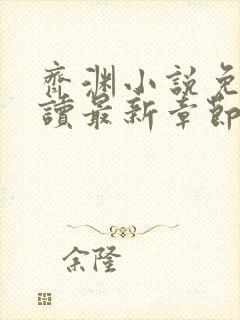 齊淵小説免
讀最新章節
余隆